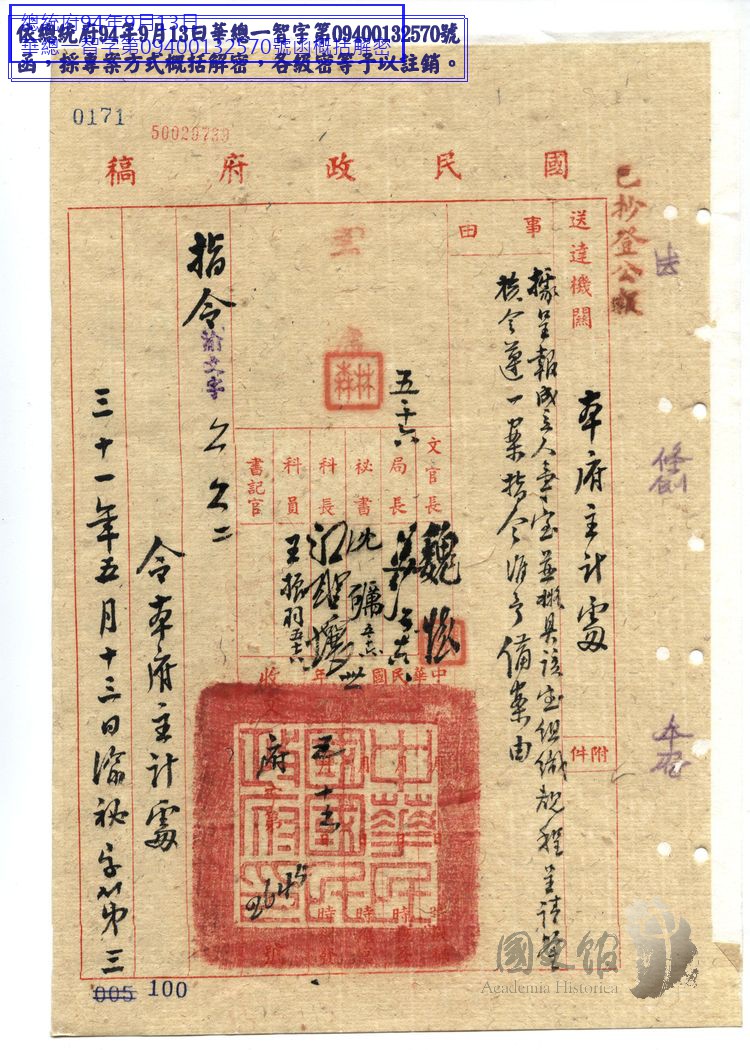 總統府94年9月13日
華總一智字第09400132570號函概括解密
依總統府94年9月13日華總一智字第09400132570號
函，採專案方式概括解密，各級密等予以註銷。
0171
50020730
國民政府稿
已抄登公報
送達機關
本府主計處
附件
事由
據呈報成立人事室並擬具該室組織規程呈請鑒
核令遵一案指令准予備案由
文官長
局長
秘書
科長
科員
書記官
魏懷
沈
王振羽
五十六
中華民國卅年
收文
府
五
第
2645
號
時
時
時
中華民國國民政府
指令
渝文字
令本府主計處
三十一年五月十三日渝秘字第三
005 100
法
本
國史館
Academia Historica